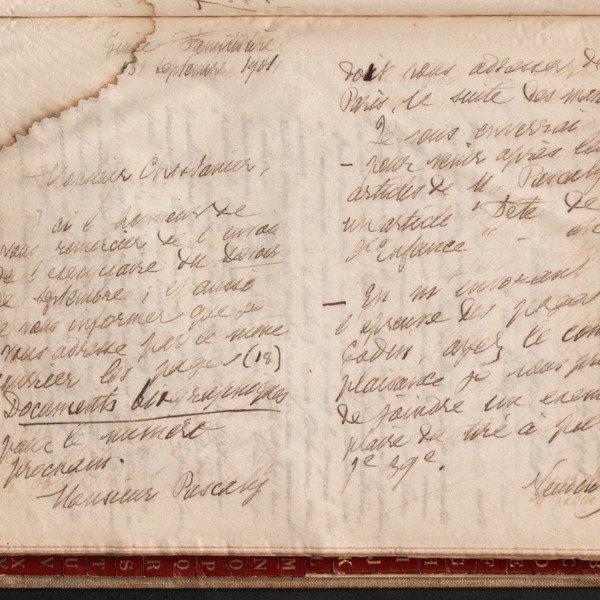 Guise Familistère
13 septembre 1901
Monsieur
J'ai l'honneur de
vous remercier de l'envoi
de l'exemplaire du Devoir
de septembre ; et aussi
de vous informer que je
vous adresse par ce même
courrier les pages (18)
Documents biographiques
pour le numéro
prochain.
Monsieur Pascaly
doit vous adresser de
Paris, la suite des
Je vous enverrai
— pour venir après les
articles de M. Pascaly
un article "Fête de
l'Enfance" -
— En m'envoyant
l'épreuve des pages
Godin, ayez la com
plaisance je vous
de joindre un exem
plaire du tiré à